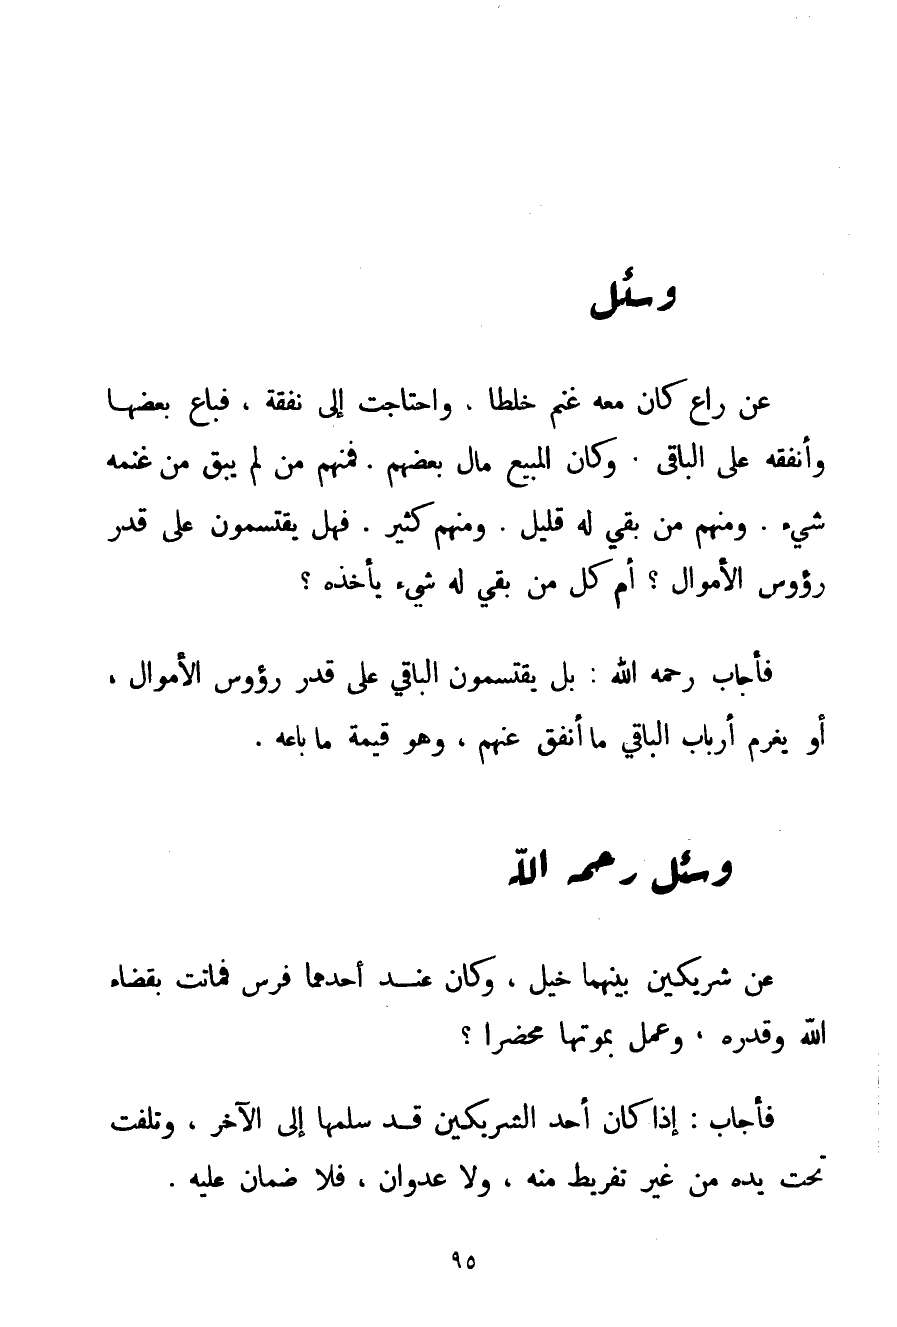 وسئل
عن راع كان معه غنم خلطا . واحتاجت إلى نفقة ، فباع بعضها
وأنفقه على الباقى . وكان المبيع مال بعضهم . فمنهم من لم يبق من غنمه
شيء . ومنهم من بقي له قليل . ومنهم كثير . فهل يقتسمون على قدر
رؤوس الأموال ؟ أم كل من بقي له شيء يأخذه ؟
فأجاب رحمه الله : بل يقتسمون الباقي على قدر رؤوس الأموال ،
أو يغرم أرباب الباقي ما أنفق عنهم ، وهو قيمة ما باعه .
وسئل رحمه الله
عن شريكين بينهما خيل ، وكان عنــد أحدهما فرس فماتت بقضاء
الله وقدره ، وعمل بموتها محضرا ؟
فأجاب : إذا كان أحد الشريكين قــد سلمها إلى الآخر ، وتلفت
تحت يده من غير تفريط منه ، ولا عدوان ، فلا ضمان عليه .
٩٥